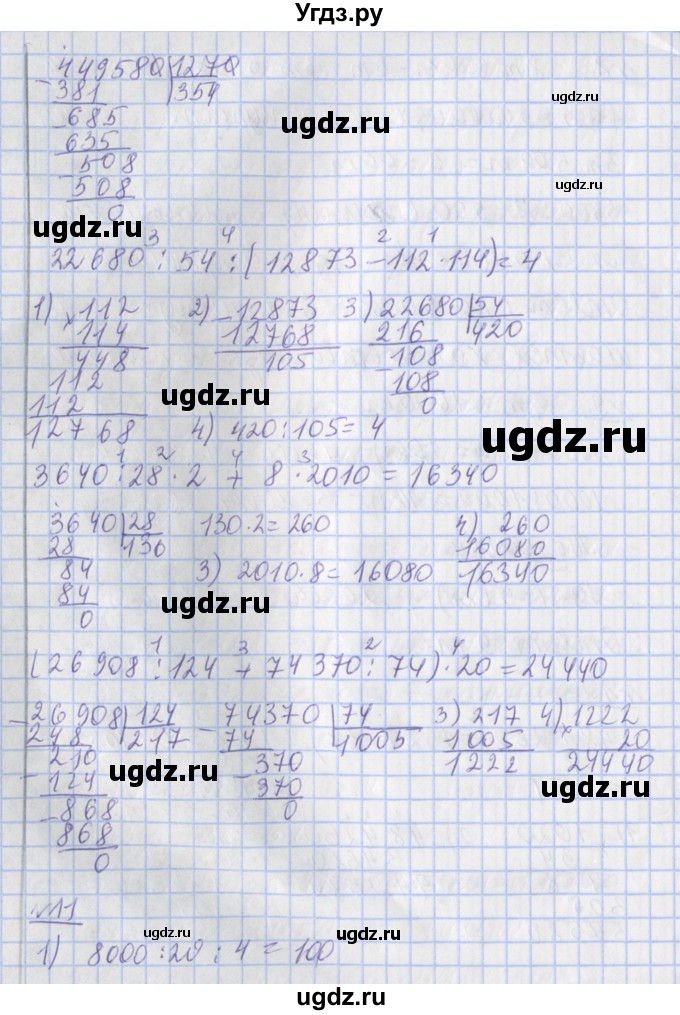 Угдз.ру
449580 1270
381 354
685
635
508
508
0
ugdz.ru
ugdz.ru
ugdz.ru
3 4 2 1
22680 : 54 : (12873 - 112 · 114) = 4
1) × 112 2) - 12873 3) 22680 54
114 12768 216 420
448 105 - 108
112 108
112 0
12768 4) 420 : 105 = 4
ugdz.ru
ugdz.ru
1 2 4 3
3640 : 28 · 2 + 8 · 2010 = 16340
3640 28 130 · 2 = 260 4) 260
28 130 16080
84 3) 2010 · 8 = 16080 16340
84
0
ugdz.ru
ugdz.ru
1 3 2 4
(26908 : 124 + 74370 : 74) · 20 = 24440
- 26908 124 - 74370 74 3) 217 4) × 1222
248 217 74 1005 1005 20
210 370 1222 24440
- 124 - 370
- 868 0
868
0
ugdz.ru
ugdz.ru
№11
1) 8000 : 20 : 4 = 100
ugdz.ru
ugdz.ru
ugdz.ru